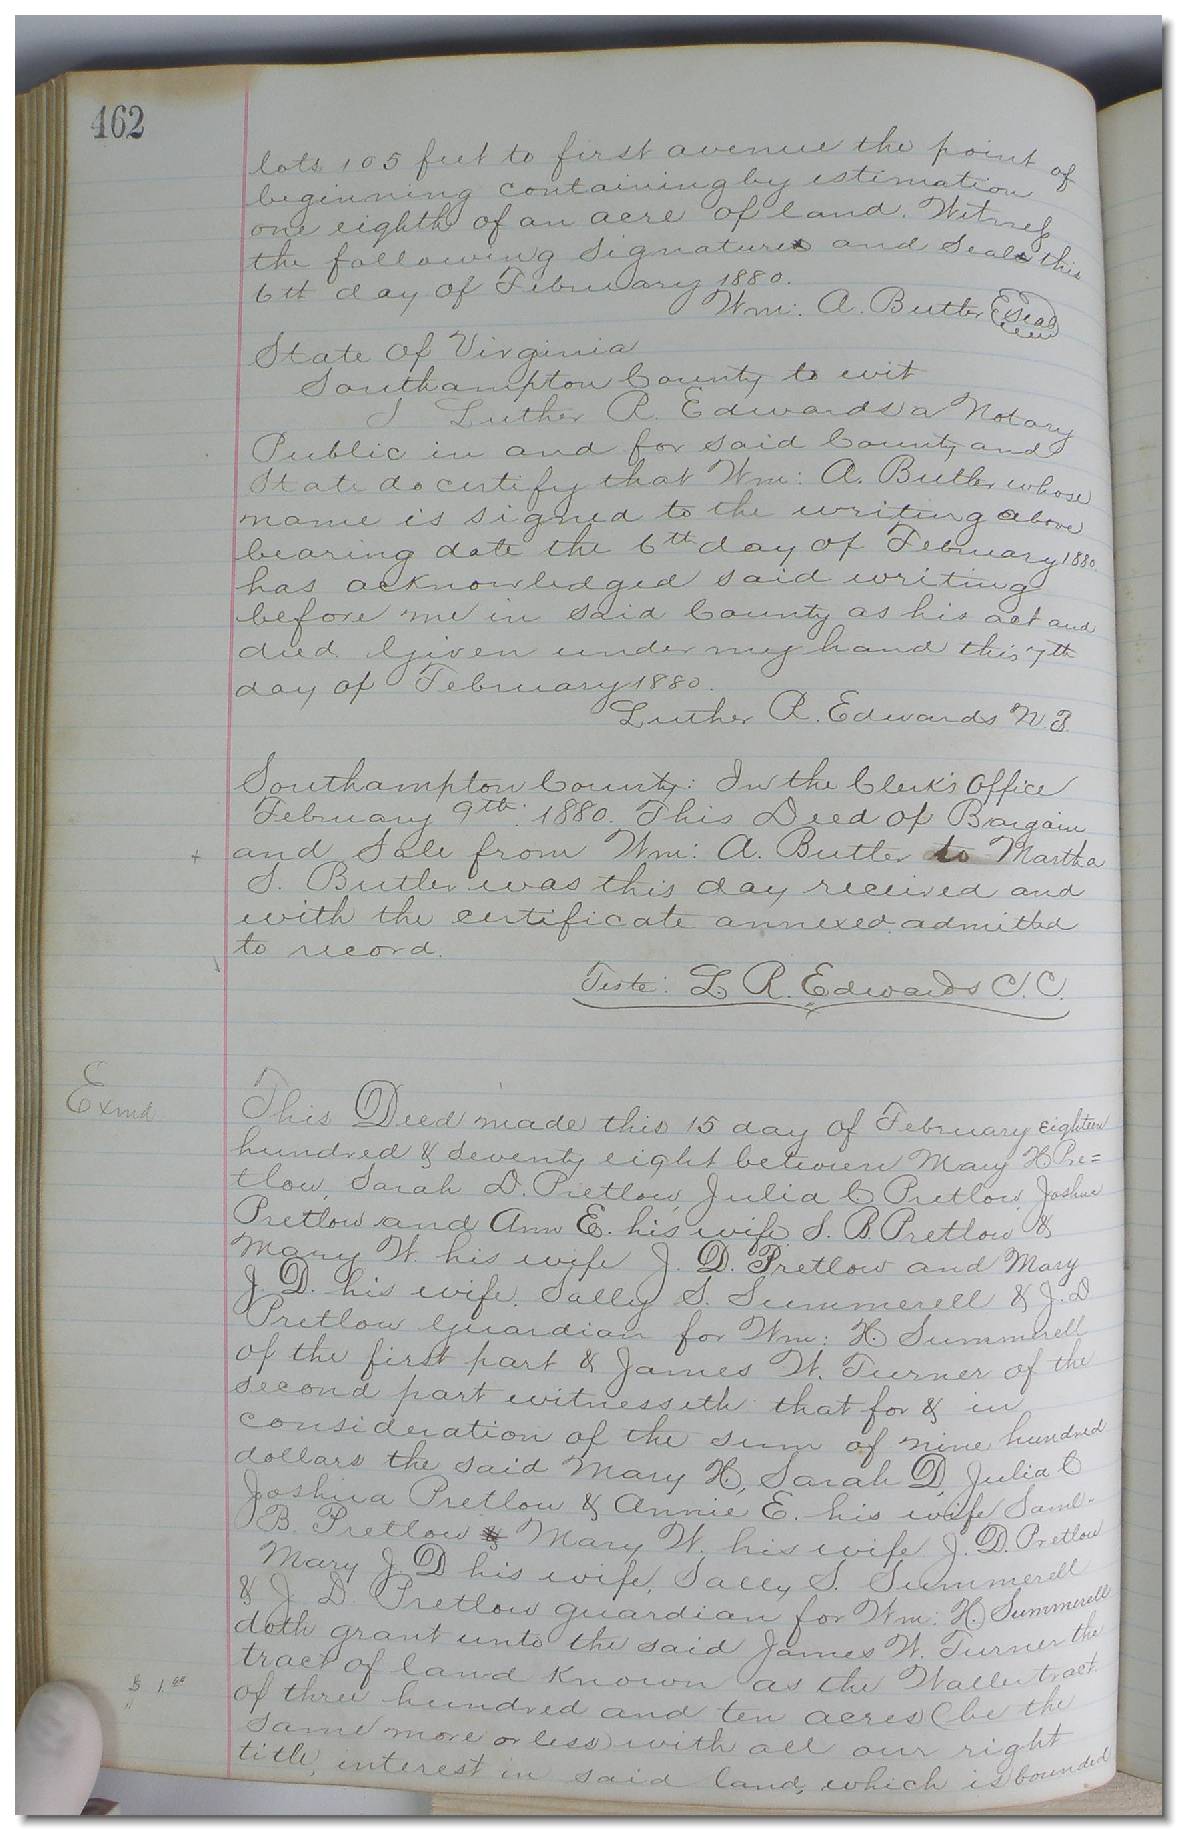 462
lots 105 feet to first avenue the point of
beginning containing by estimation
one eighth of an acre of land. Witness
the following signatures and seals this
6th day of February 1880.
Wm: A. Butler Seal
State of Virginia
Southampton County to wit
I Luther R. Edwards a Notary
Public in and for said County and
State do certify that Wm: A. Butler whose
name is signed to the writing above
bearing date the 6th day of February 1880.
has acknowledged said writing
before me in said County as his act and
deed. Given under my hand this 7th
day of February 1880.
Luther R. Edwards N.P.
Southampton County: In the Clerk's Office
February 9th: 1880. This Deed of Bargain
+ and Sale from Wm: A. Butler to Martha
S. Butler was this day received and
with the certificate annexed admitted
to record.
Teste: L. R. Edwards C.C.
Exmd
This Deed made this 15 day of February eighteen
hundred & seventy eight between Mary H Pre=
tlow, Sarah D. Pretlow, Julia C Pretlow, Joshua
Pretlow and Ann E. his wife S. B. Pretlow &
Mary W. his wife J. D. Pretlow and Mary
J. D. his wife, Sally S. Summerell & J. D
Pretlow Guardian for Wm: H. Summerell
of the first part & James W. Turner of the
second part witnesseth that for & in
consideration of the sum of nine hundred
dollars the said Mary H, Sarah D, Julia C
Joshua Pretlow & Annie E. his wife Saml.
B. Pretlow & Mary W. his wife J. D. Pretlow
Mary J. D his wife, Sally S. Summerell
& J. D. Pretlow guardian for Wm: H. Summerell
doth grant unto the said James W. Turner the
tract of land known as the Waller tract
$ 1.00
of three hundred and ten acres (be the
same more or less) with all our right
title, interest in said land, which is bounded